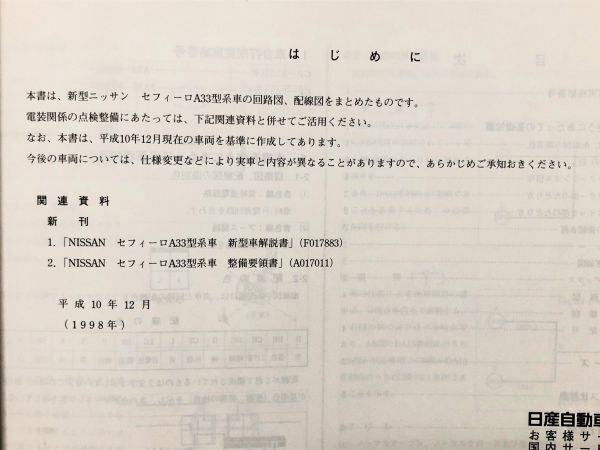 はじめに
本書は、新型ニッサン　セフィーロA33型系車の回路図、配線図をまとめたものです。
電装関係の点検整備にあたっては、下記関連資料と併せてご活用ください。
なお、本書は、平成10年12月現在の車両を基準に作成してあります。
今後の車両については、仕様変更などにより実車と内容が異なることがありますので、あらかじめご承知おきください。
関連資料
新刊
1.「NISSAN　セフィーロA33型系車　新型車解説書」(F017883)
2.「NISSAN　セフィーロA33型系車　整備要領書」(A017011)
平成10年12月
(1998年)
日産自動車
お客様サー
国内サー